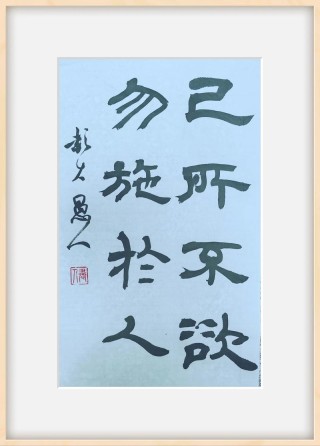 己所不欲
勿施於人
彭士愚人